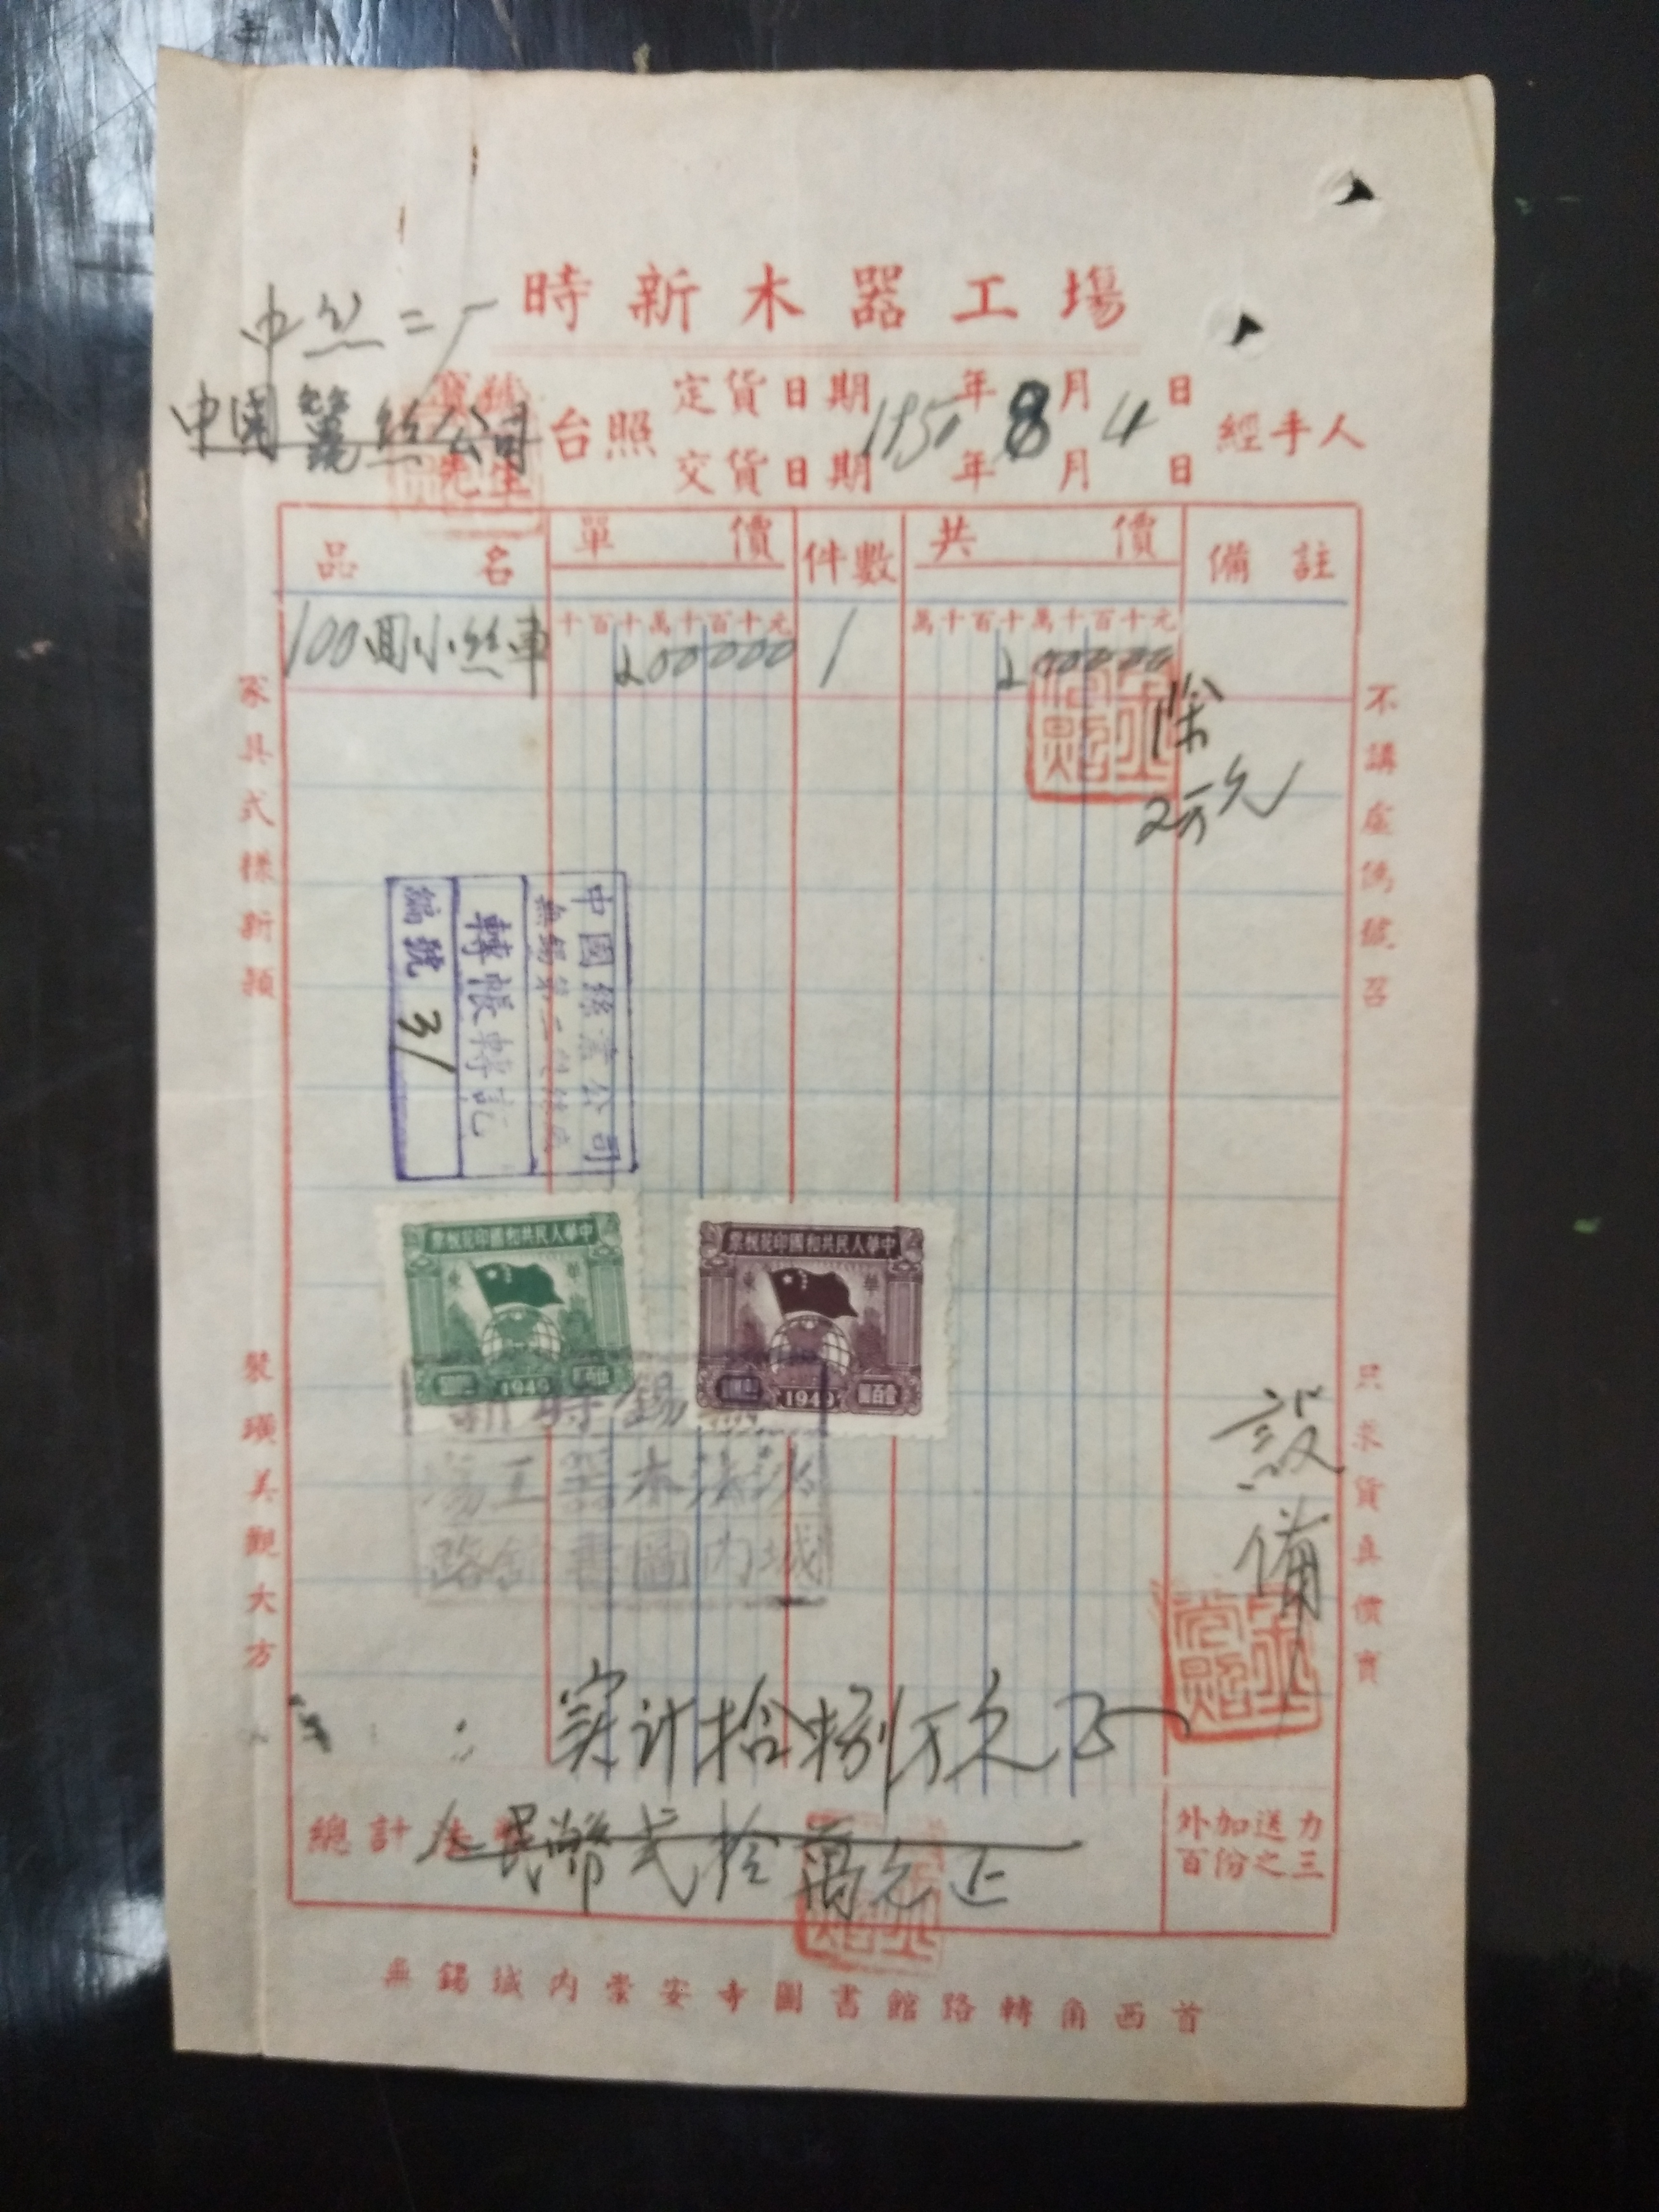 時新木器工場
中丝二厂
中国蠶丝公司
寶號
先生
台照
定貨日期 1950年8月4日
交貨日期 年 月 日
經手人
品名 單價 件數 共價 備註
十百十萬千百十元
萬千百十萬千百十元
100回小丝車 200000 1 200000
除
2万元
家具式樣新穎
裝璜美觀大方
不講虛偽號召
只求貨真價實
中國絲業公司
轉帳轉記
編號 31
中華人民共和國印花稅票
華東
1949
中華人民共和國印花稅票
華東
壹百圓
1949
無錫時新
木器工場
城内圖書館路
設備
实计拾捌万元正
總計
人民幣弍拾萬元正
外加送力
百份之三
無錫城内崇安寺圖書館路轉角西首